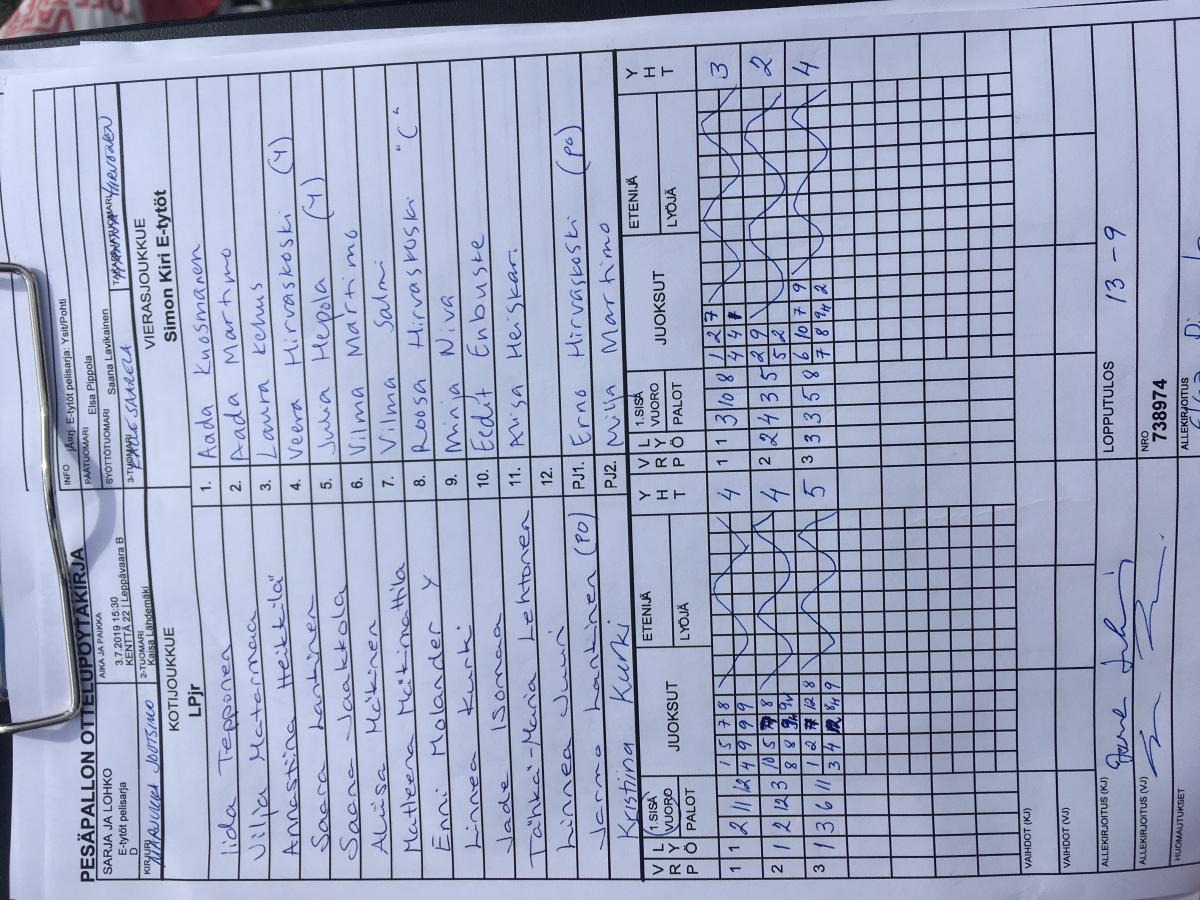 PESÄPALLON OTTELUPÖYTÄKIRJA
SARJA JA LOHKO
E-tytöt pelisarja
D
AIKA JA PAIKKA
3.7.2019 15:30
KENTTÄ 22 | Leppävaara B
INFO
E-tytöt pelisarja: Ysit/Pohti
PÄÄTUOMARI Elsa Pippola
SYÖTTÖTUOMARI Saana Lavikainen
KIRJURI
2-TUOMARI
Kaisa Lähdemäki
3-TUOMARI
TAKARAJATUOMARI
KOTIJOUKKUE
LPjr
VIERASJOUKKUE
Simon Kiri E-tytöt
Iida Tepponen
1. Aada Kuosmanen
Vilja Mattanmaa
2. Aada Martimo
Annastiina Heikkilä
3. Laura Kehus
Saara Lankinen
4. Veera Hirvaskoski (4)
Saana Jaakkola
5. Julia Hepola (4)
Aliisa Mäkinen
6. Vilma Martimo
Matleena Mäkimattila
7. Vilma Salmi
Enni Molander Y
8. Roosa Hirvaskoski "C"
Linnea Kurki
9. Minja Niva
Jade Isomaa
10. Eedit Enbuske
Tähkä-Maria Lehtonen
11. Alisa Heiskari
Linnea Juuri
12.
Jarmo Lankinen (PO)
PJ1. Erno Hirvaskoski (PO)
Kristiina Kurki
PJ2. Milja Martimo
V R P L Y Ö 1.SISÄ VUORO PALOT JUOKSUT ETENIJÄ LYÖJÄ Y H T
V R P L Y Ö 1.SISÄ VUORO PALOT JUOKSUT ETENIJÄ LYÖJÄ Y H T
1 1 2 11 12 1 5 7 8 4
4 9 9 9
1 1 3 10 8 1 2 7 3
4 4
2 1 2 12 3 10 5 8 4
8 8
2 2 4 3 5 2 9 2
5 2
3 1 3 6 11 1 2 12 8 5
3 4 9
3 3 3 5 8 6 10 7 9 4
7 8 2
VAIHDOT (KJ)
VAIHDOT (VJ)
ALLEKIRJOITUS (KJ)
LOPPUTULOS 13 - 9
ALLEKIRJOITUS (VJ)
NRO
738974
HUOMAUTUKSET
ALLEKIRJOITUS